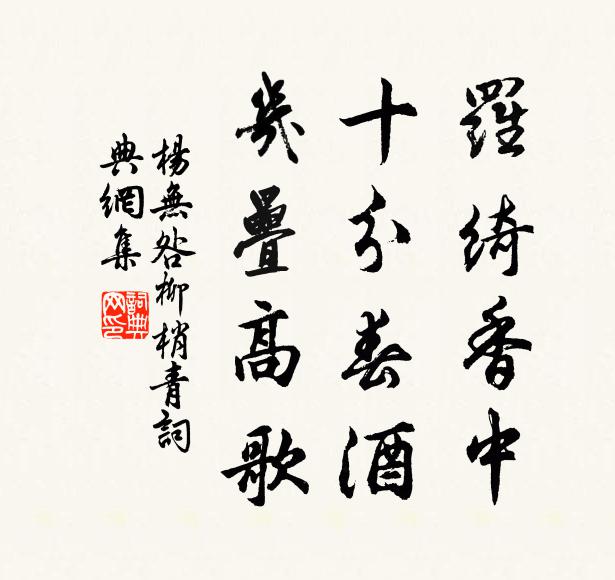 羅綺香中
十分春酒
幾疊高歌
楊無咎柳梢青詞
典網集
詞典网印